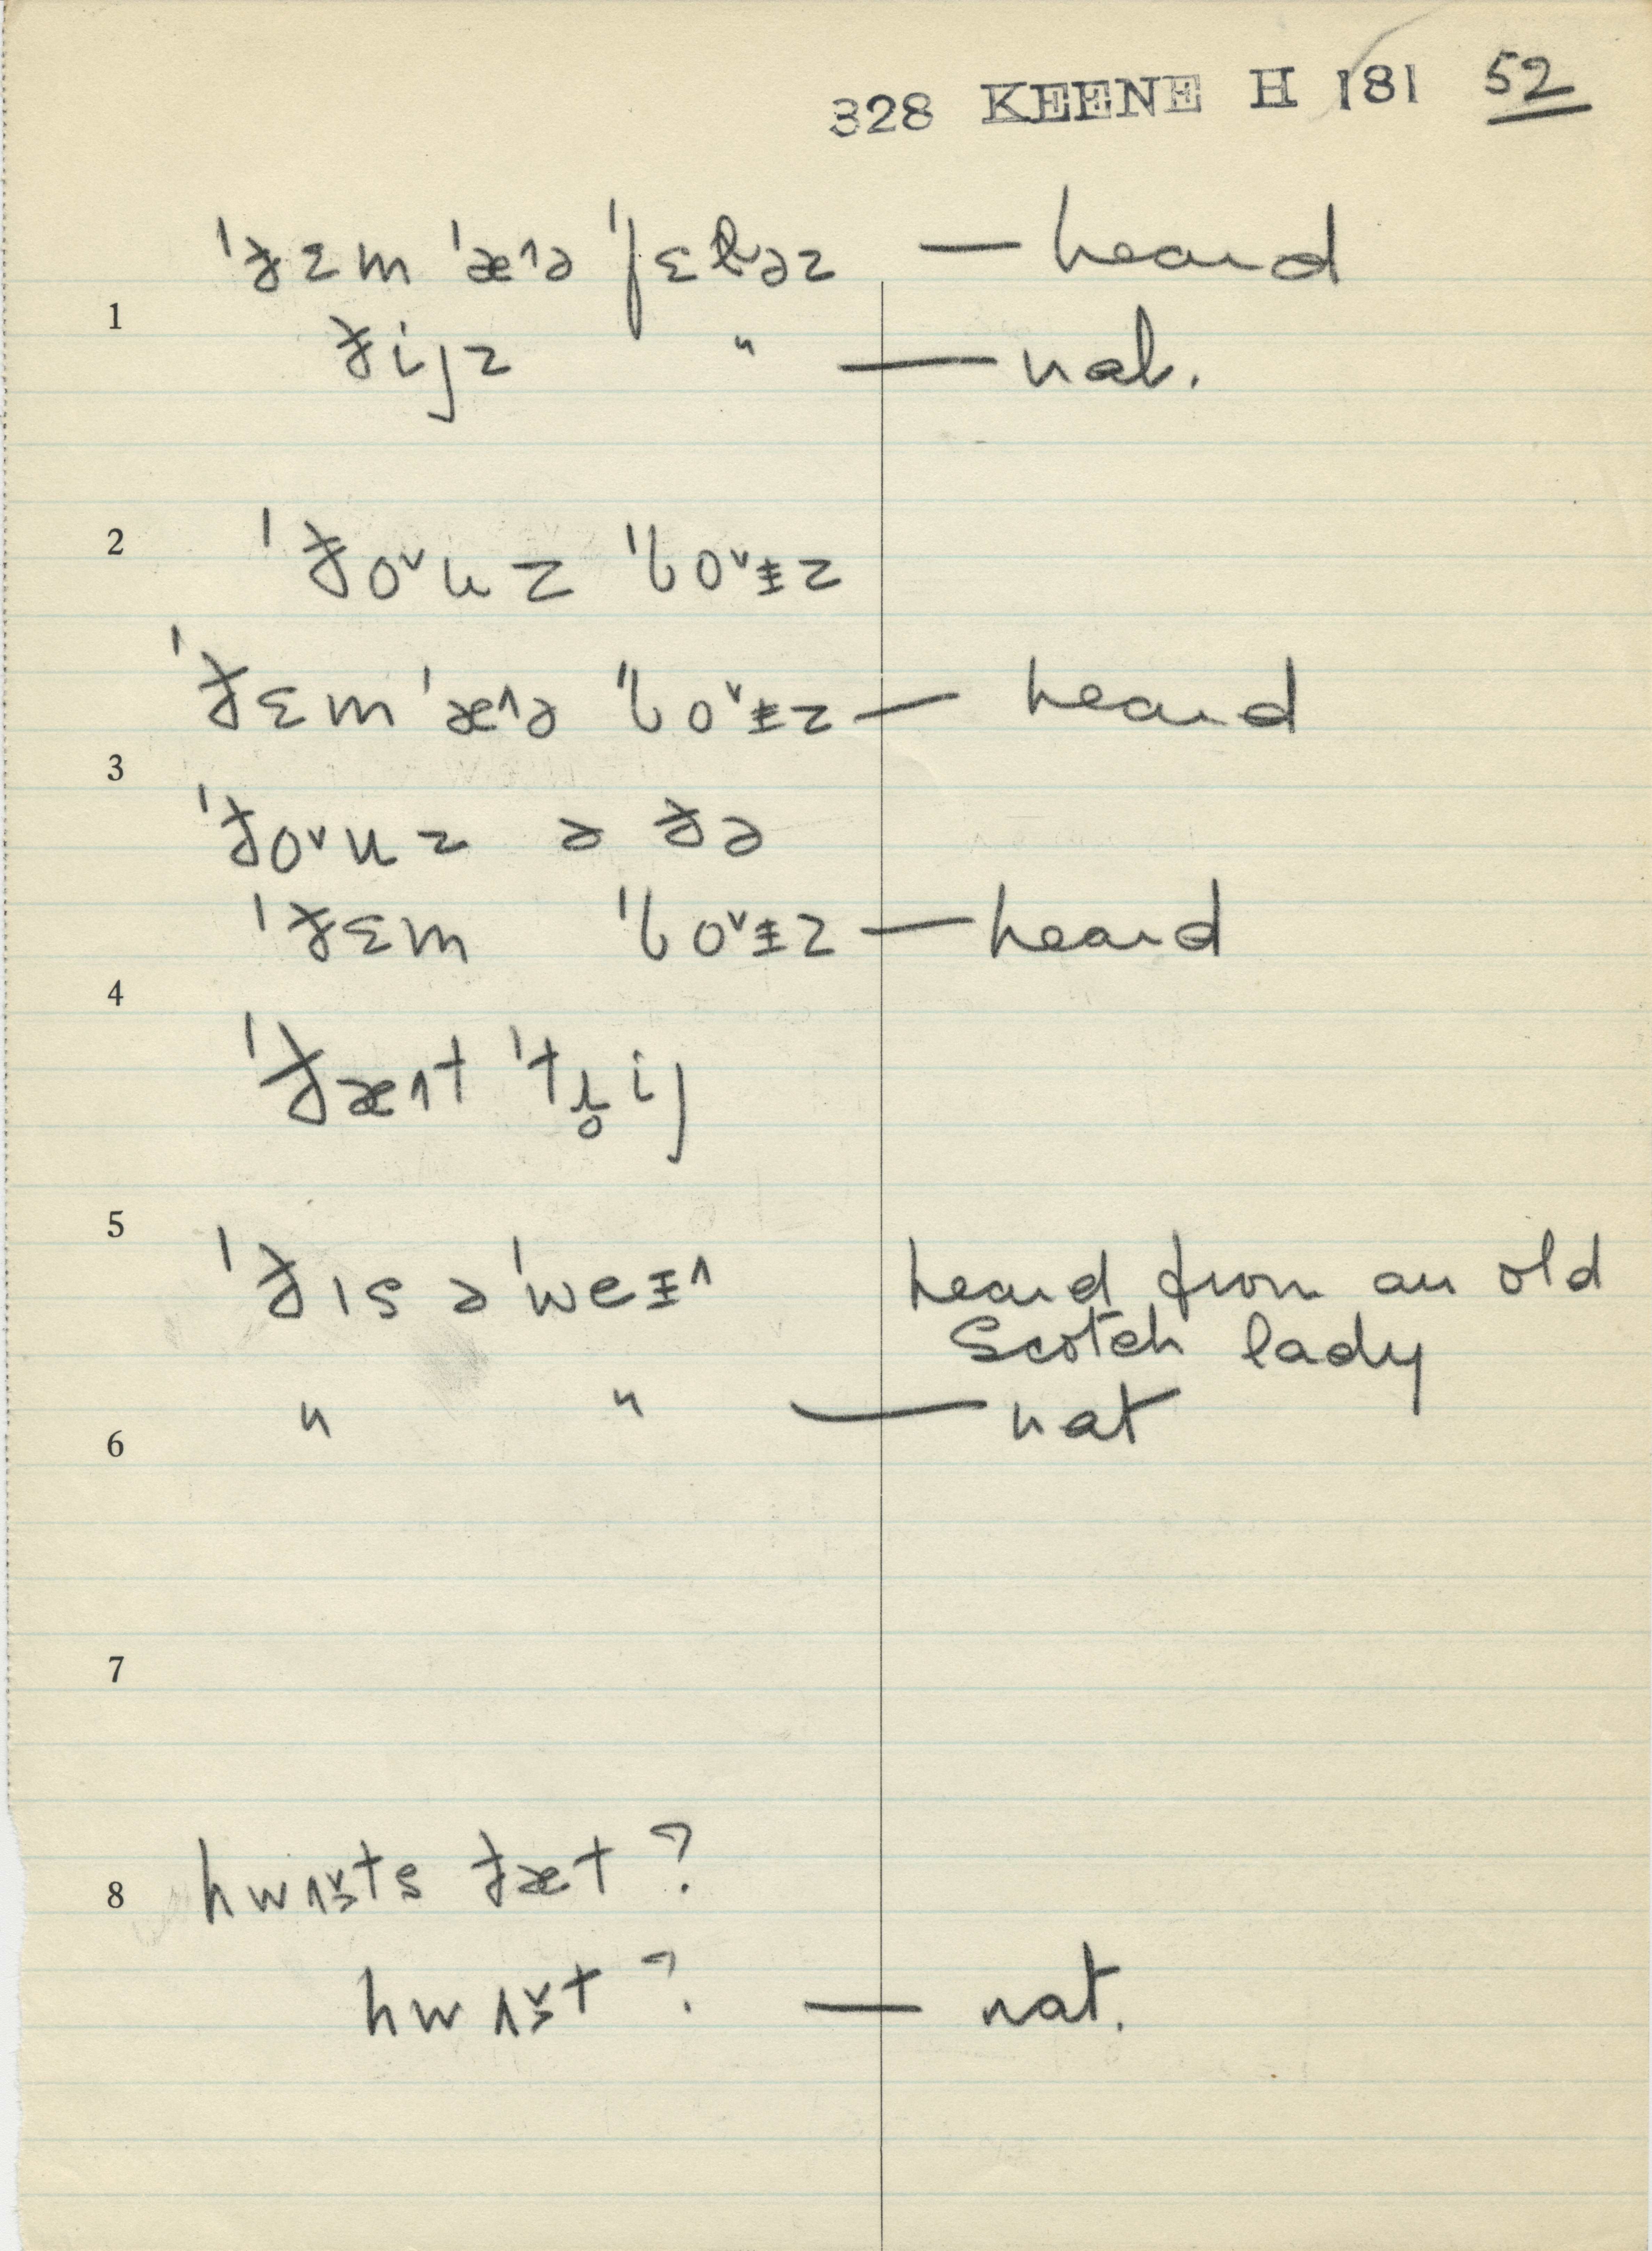 328 KEENE H 181 52
ˈðɛm ˈæ˄ə ˈfɛləz — heard
1
ðijz " — nat.
2 ˈðo˅uz ˈbo˅ɨz
ˈðɛm ˈæ˄ə ˈbo˅ɨz — heard
3
ˈðo˅uz ə ðə
ˈðɛm ˈbo˅ɨz — heard
4
ˈðæ˄t ˈtɹ̥ij
5
ˈðɪs əˈweɨ˄ heard from an old
Scotch lady
" " — nat
6
7
8 ðæt ?
— nat.